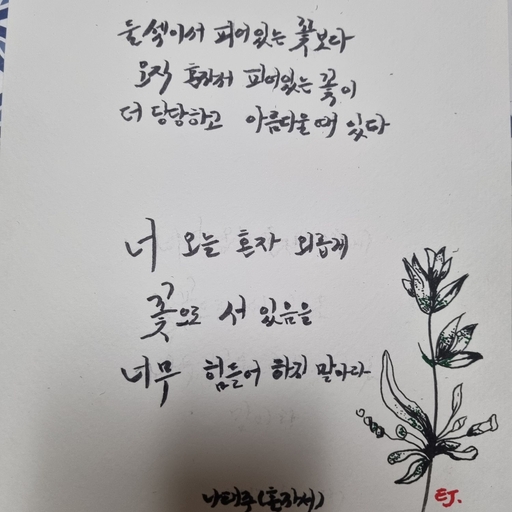 둘 셋이서 피어 있는 꽃보다
오직 혼자서 피어있는 꽃이
더 당당하고 아름다울 때 있다
너 오늘 혼자 외롭게
꽃으로 서 있음을
너무 힘들어 하지 말아라
나태주(혼자서)
EJ.